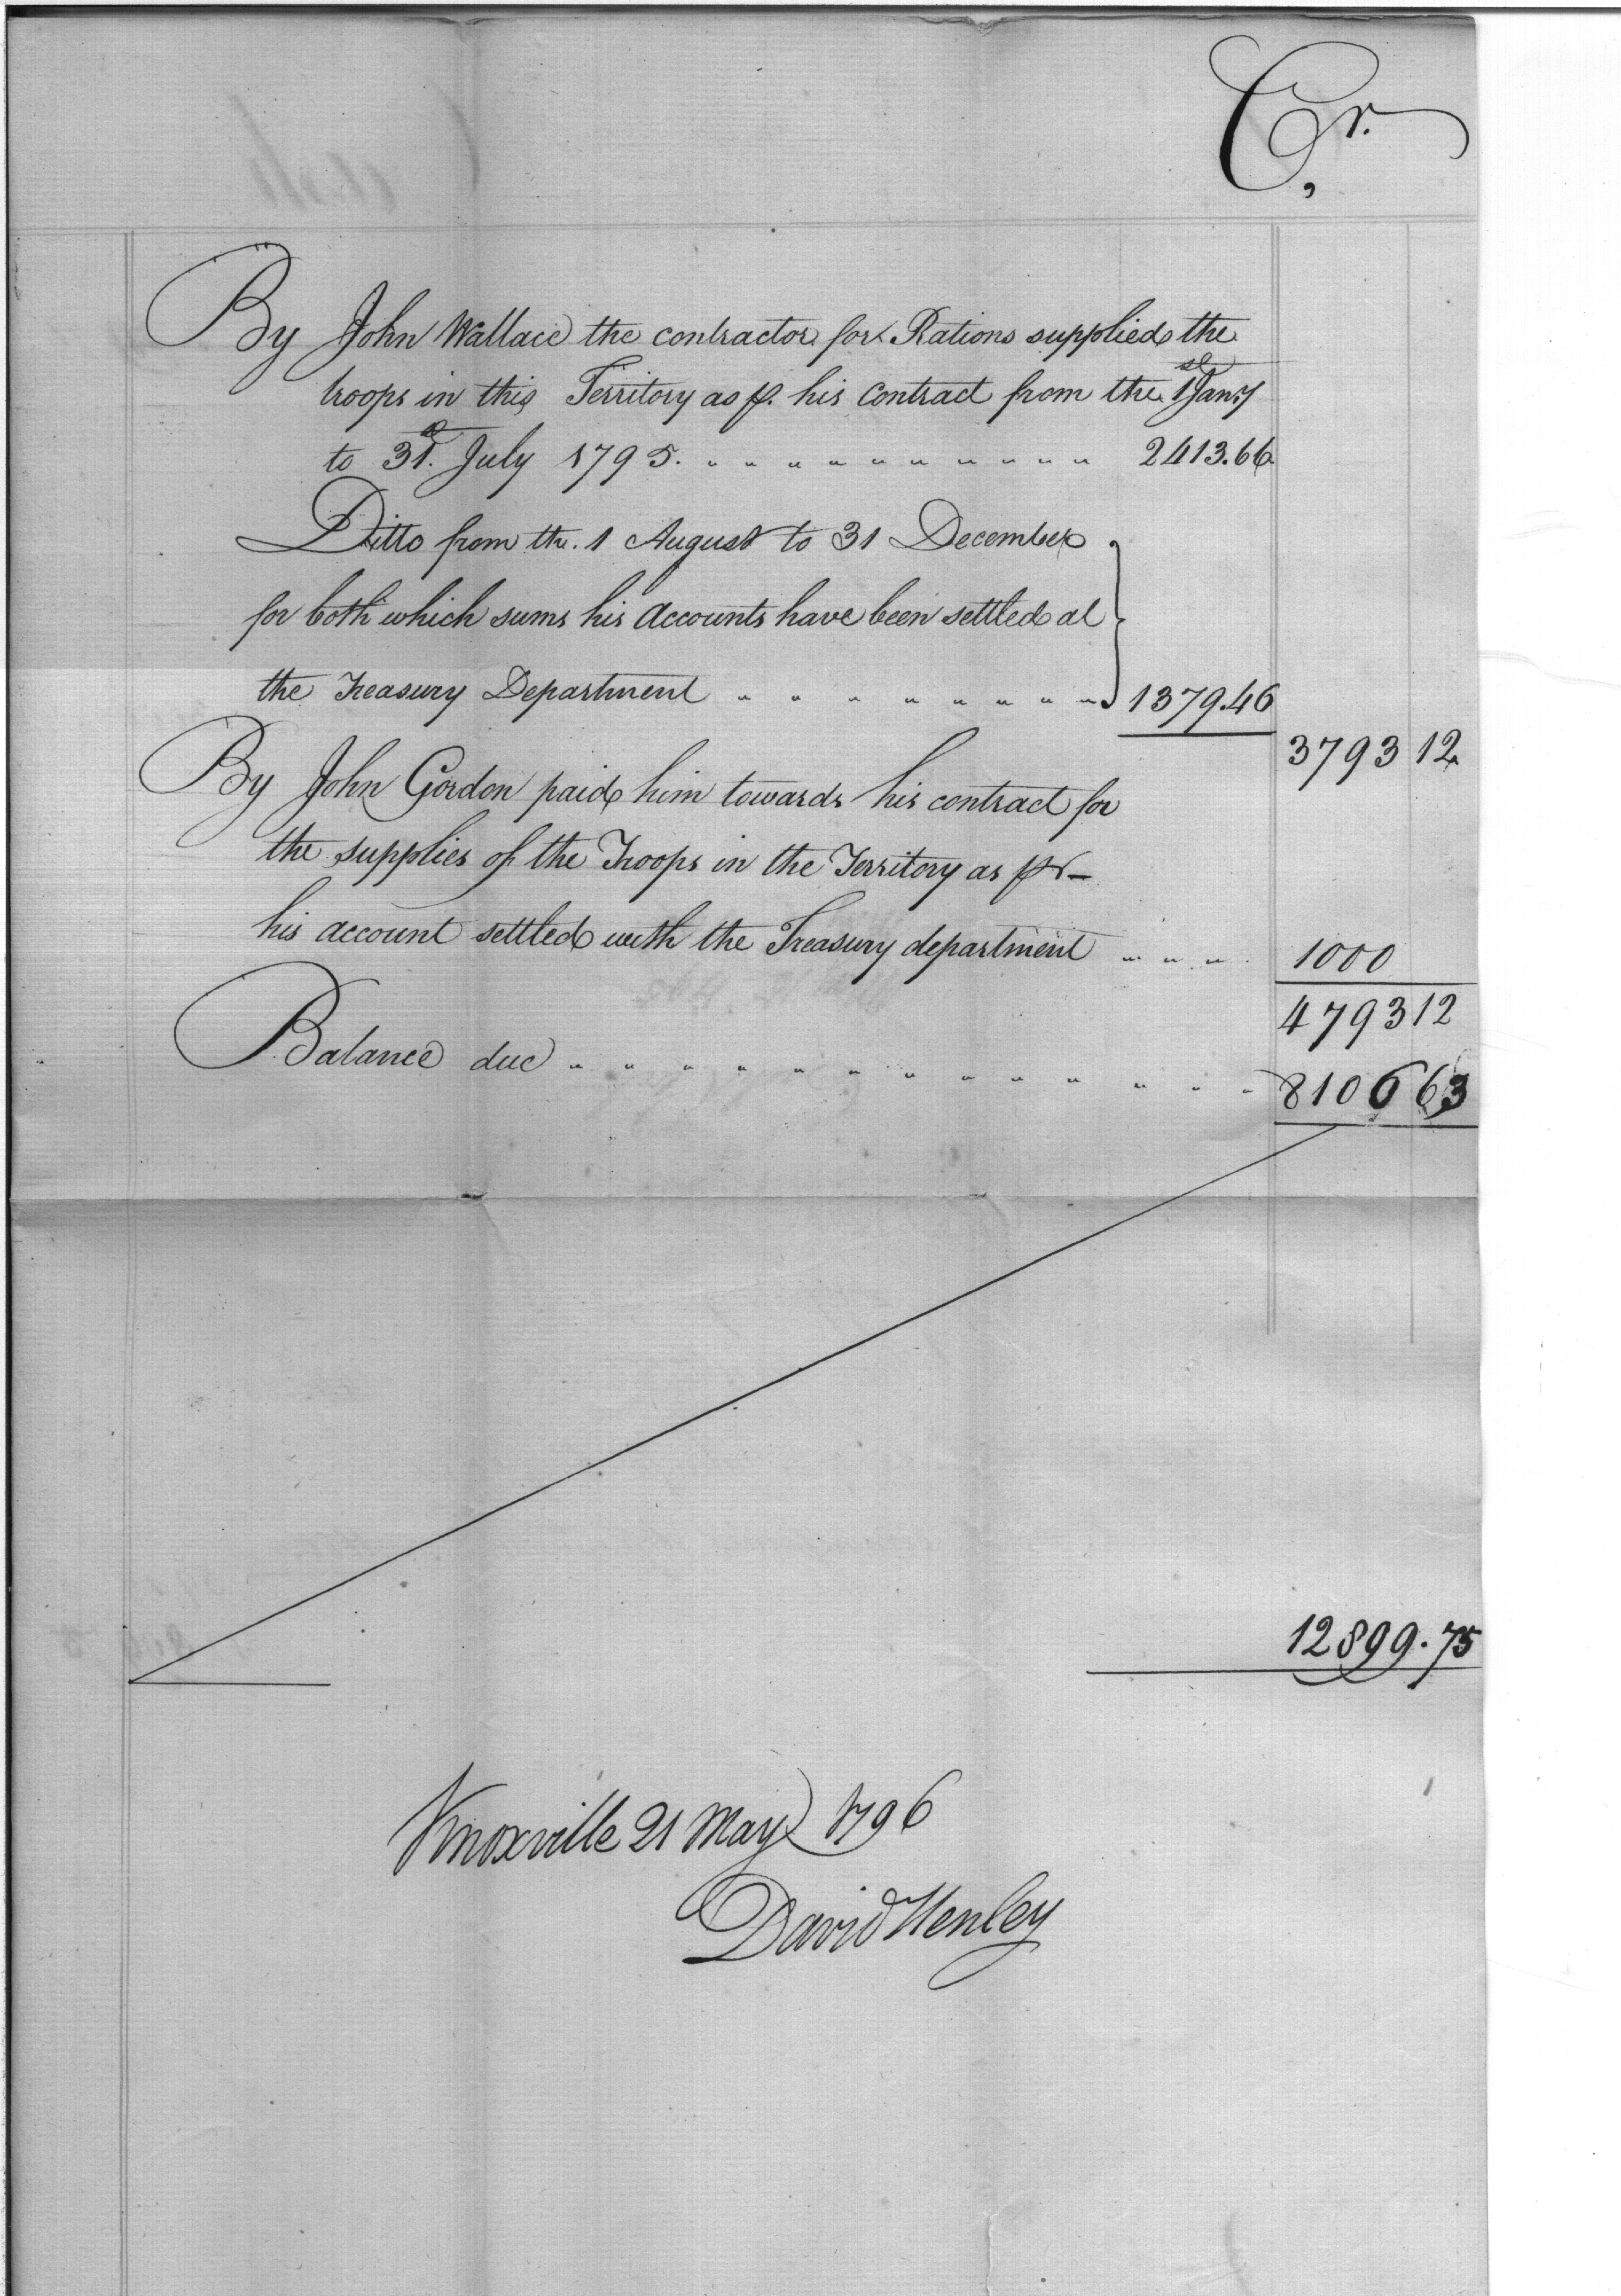 Cr.
By John Wallace the contractor for Rations supplied the
troops in this Territory as p. his Contract from the 1st Jany
to 31st. July 1795. " " " " " " " " " " 2413.66
Ditto from the. 1 August to 31 December
for both which sums his Accounts have been settled at
the Treasury Department " " " " " " " " 1379.46
3793 12
By John Gordon paid him towards his contract for
the supplies of the Troops in the Territory as pr
his account settled with the Treasury department " " " 1000
4793 12
Balance due " " " " " " " " " " " " " 8106 63
12899.75
Knoxville 21 May 1796
David Henley